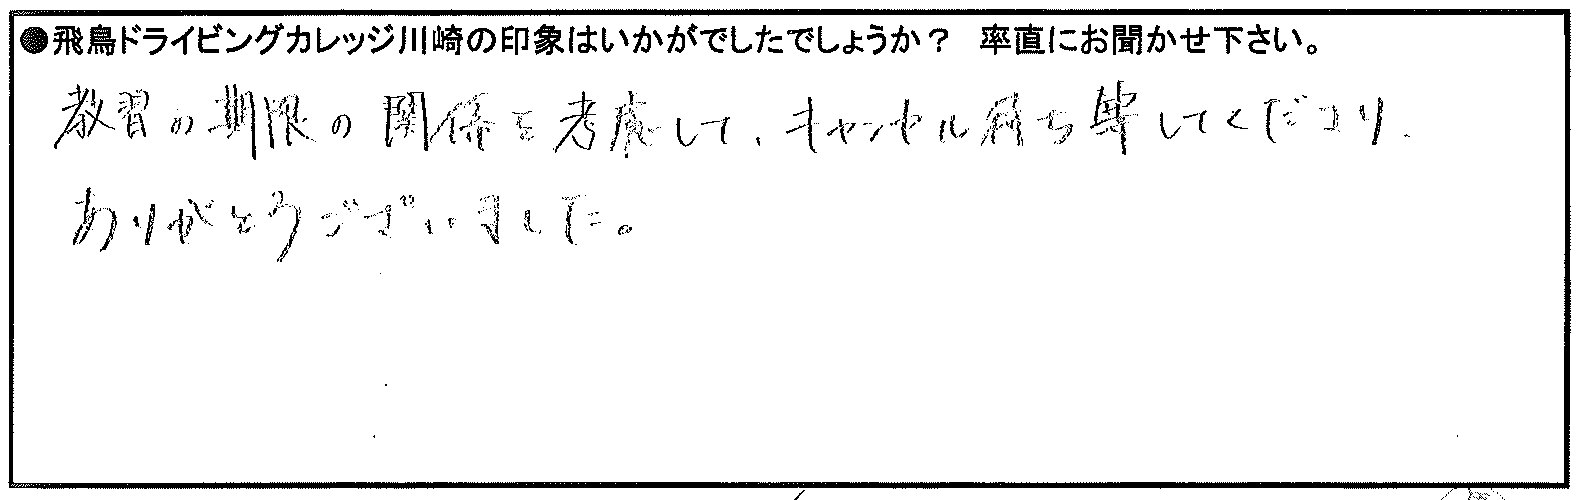 ●飛鳥ドライビングカレッジ川崎の印象はいかがでしたでしょうか？　率直にお聞かせ下さい。
教習の期限の関係を考慮して、キャンセル待ち等してくださり、
ありがとうございました。